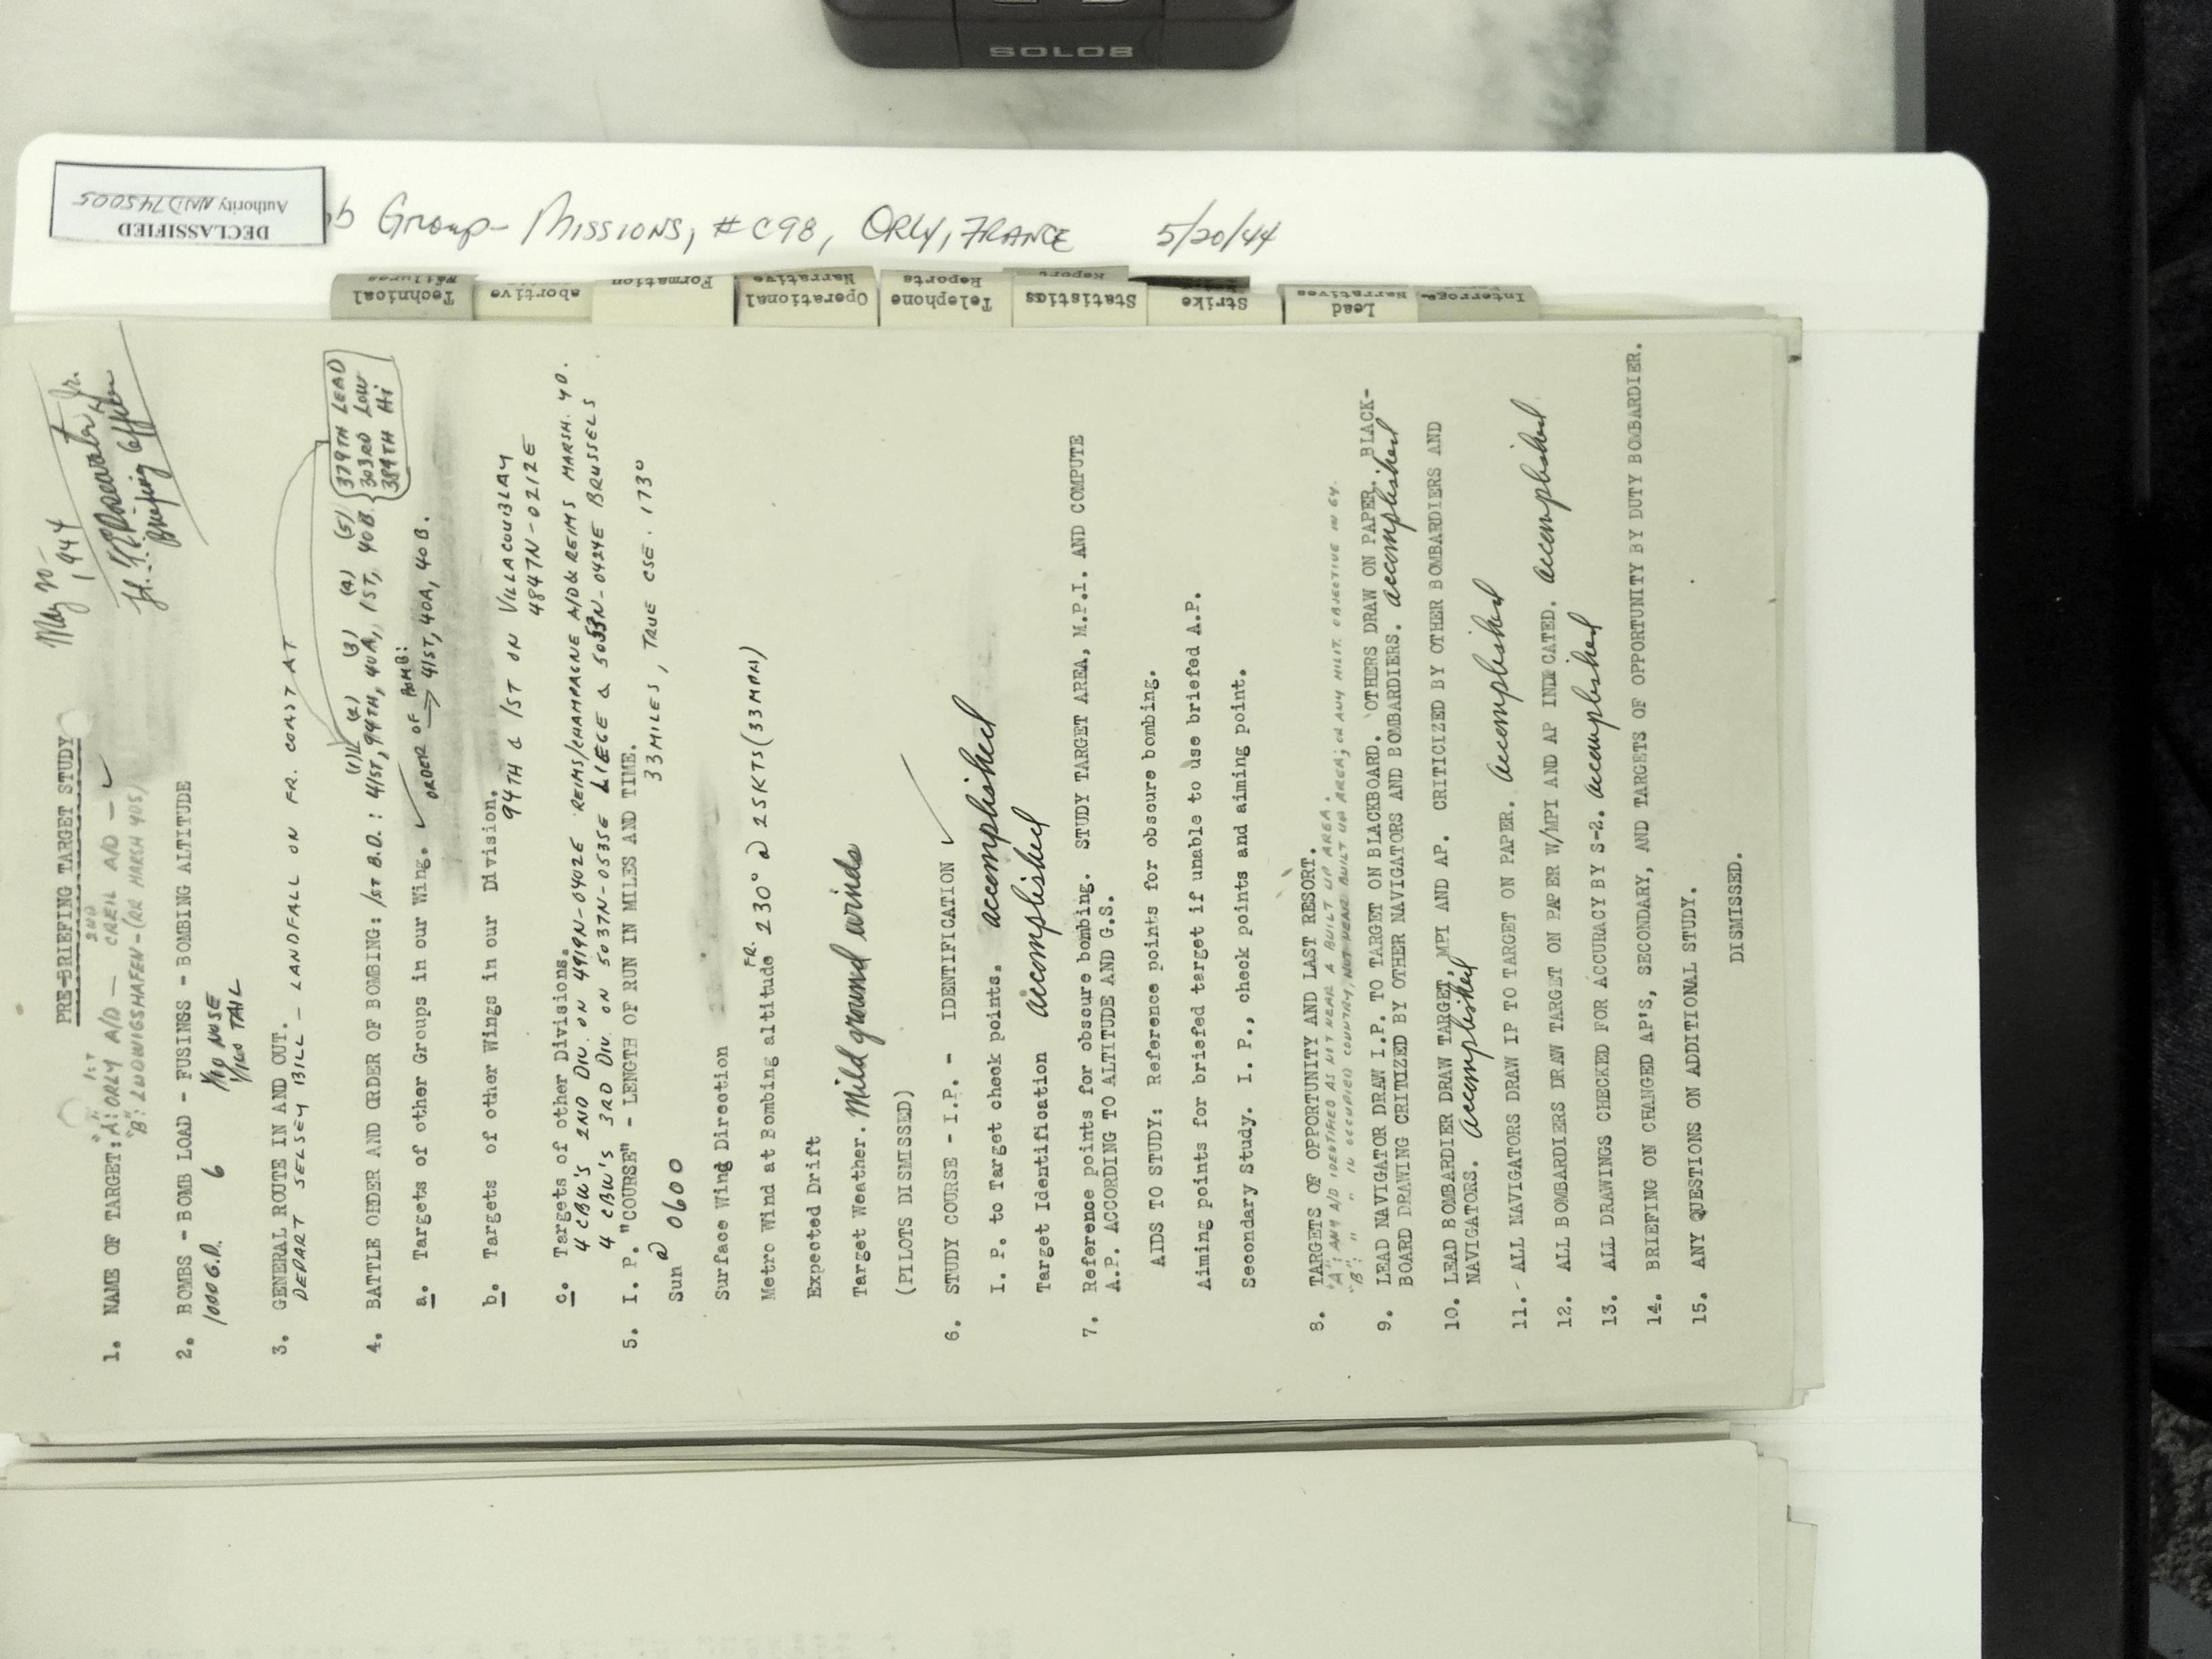 SOLO8
DECLASSIFIED
Authority NND745005
Group- Missions, #C98, ORLY, FRANCE 5/20/44
Technical
Failures
abortive
Formation
Operational
Narrative
Telephone
Reports
Statistics
Report
Strike
Lead
Narratives
Interroga-
May 20-
1944
Briefing Officer
PRE-BRIEFING TARGET STUDY
1. NAME OF TARGET: "A": 1ST ORLY A/D — 2ND CREIL A/D —
"B": LUDWIGSHAFEN-(RR MARSH YDS)
2. BOMBS - BOMB LOAD - FUSINGS - BOMBING ALTITUDE
1000 G.P. 6 1/10 NOSE
1/100 TAIL
3. GENERAL ROUTE IN AND OUT.
DEPART SELSEY BILL - LANDFALL ON FR. COAST AT
4. BATTLE ORDER AND ORDER OF BOMBING: 1ST B.D.: (1) 41ST, (2) 94TH, (3) 40A, (4) 1ST, (5) 40B. { 379TH LEAD
303RD LOW
384TH Hi
a. Targets of other Groups in our Wing. ✓ ORDER OF BOMB:
→ 41ST, 40A, 40B.
b. Targets of other Wings in our Division.
94TH & 1ST ON VILLACOUBLAY
4847N-0212E
c. Targets of other Divisions.
4 CBW'S 2ND DIV. ON 4919N-0402E REIMS/CHAMPAGNE A/D & REIMS MARSH. YD.
4 CBW'S 3RD DIV. ON 5037N-0535E LIEGE & 5053N-0424E BRUSSELS
5. I. P. "COURSE" - LENGTH OF RUN IN MILES AND TIME.
33 MILES, TRUE CSE. 173°
Sun @ 0600
Surface Wind Direction
Metro Wind at Bombing altitude FR. 230° @ 25KTS (33MPH)
Expected Drift
Target Weather. Mild ground winds
(PILOTS DISMISSED)
6. STUDY COURSE - I.P. - IDENTIFICATION ✓
I. P. to Target check points. accomplished
Target Identification accomplished
7. Reference points for obscure bombing. STUDY TARGET AREA, M.P.I. AND COMPUTE
A.P. ACCORDING TO ALTITUDE AND G.S.
AIDS TO STUDY: Reference points for obscure bombing.
Aiming points for briefed target if unable to use briefed A.P.
Secondary Study. I. P., check points and aiming point.
8. TARGETS OF OPPORTUNITY AND LAST RESORT.
"A": ANY A/D IDENTIFIED AS NOT NEAR A BUILT UP AREA.
"B": " " " IN OCCUPIED COUNTRY, NOT NEAR BUILT UP AREA; OR ANY MILIT. OBJECTIVE IN GY.
9. LEAD NAVIGATOR DRAW I.P. TO TARGET ON BLACKBOARD. OTHERS DRAW ON PAPER. BLACK-
BOARD DRAWING CRITIZED BY OTHER NAVIGATORS AND BOMBARDIERS. accomplished
10. LEAD BOMBARDIER DRAW TARGET, MPI AND AP. CRITICIZED BY OTHER BOMBARDIERS AND
NAVIGATORS. accomplished
11. ALL NAVIGATORS DRAW IP TO TARGET ON PAPER. accomplished
12. ALL BOMBARDIERS DRAW TARGET ON PAPER W/MPI AND AP INDICATED. accomplished
13. ALL DRAWINGS CHECKED FOR ACCURACY BY S-2. accomplished
14. BRIEFING ON CHANGED AP'S, SECONDARY, AND TARGETS OF OPPORTUNITY BY DUTY BOMBARDIER.
15. ANY QUESTIONS ON ADDITIONAL STUDY.
DISMISSED.